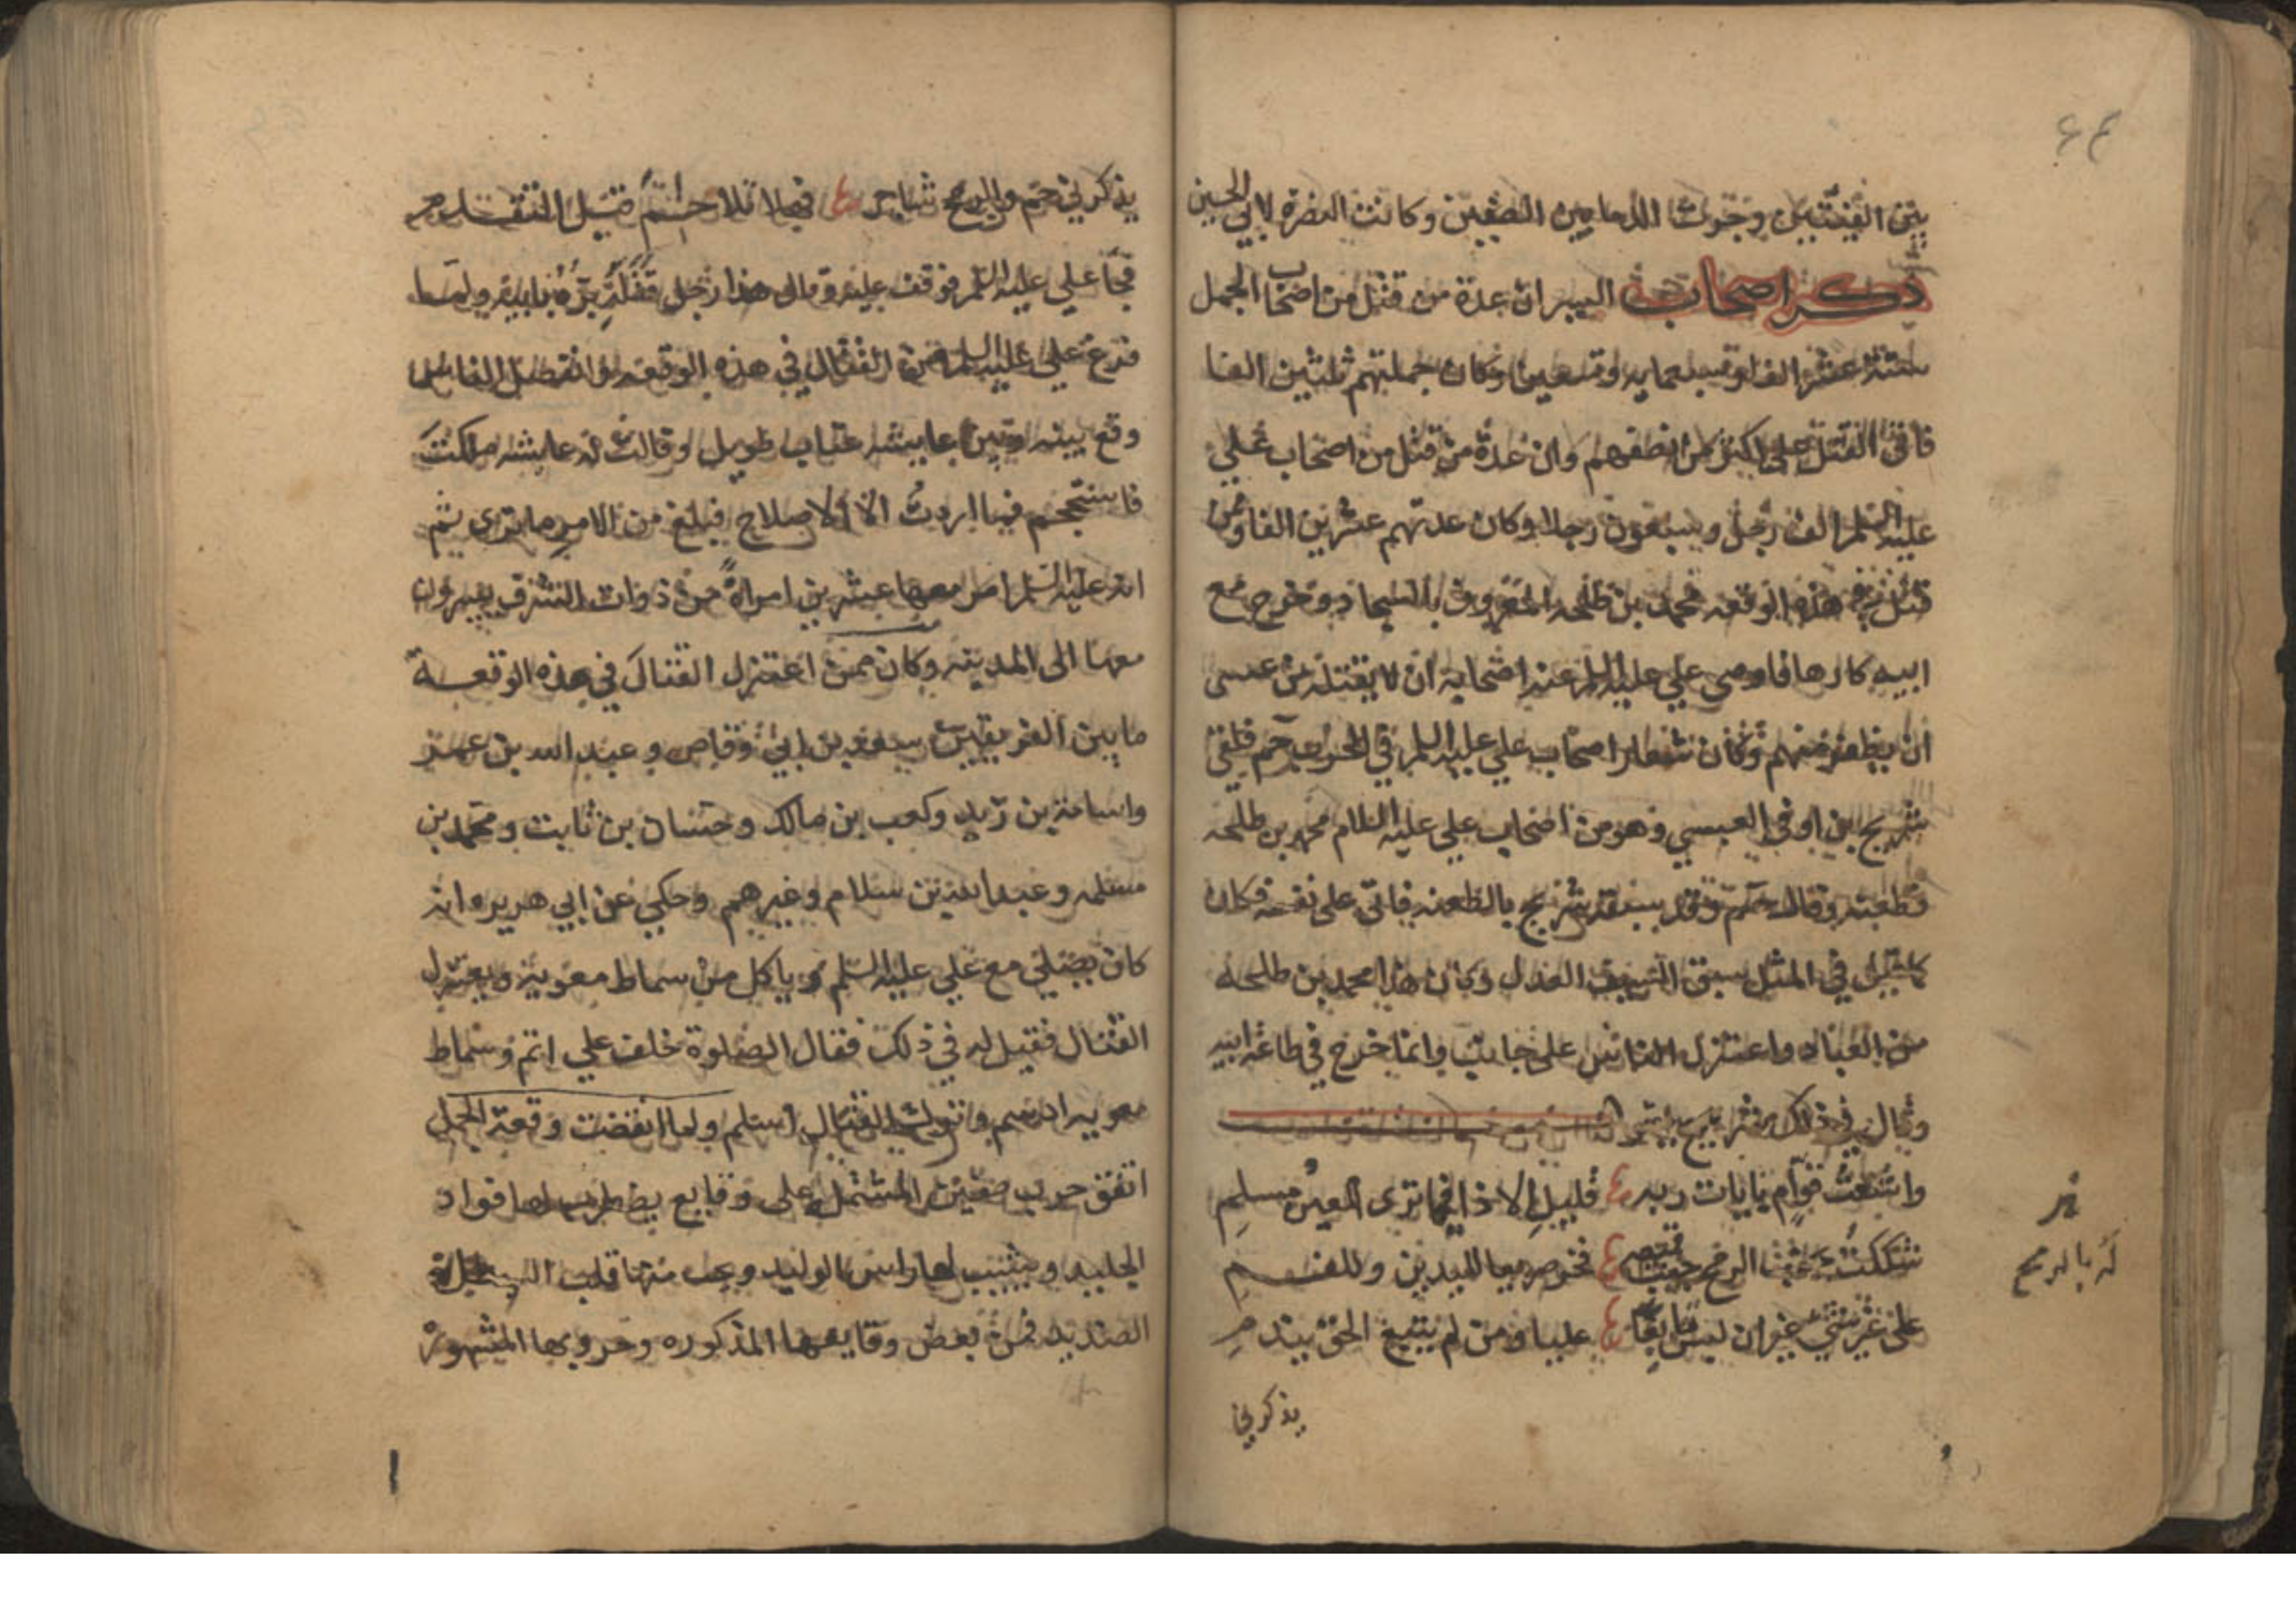 ٤٤
بين الفئتين وجرت الدما بين الصفين وكانت النصرة لابي الحسين
ذكر اصحاب السير ان عدة من قتل من اصحاب الجمل
ستة عشر الفا وسبعمايه وتسعين وكان جملتهم ثلثين الفا
فاتى القتل على اكثر من نصفهم وان عدة من قتل من اصحاب علي
عليه السلم الف رجل وسبعون رجلا وكان عدتهم عشرين الفا وممن
قتل في هذه الوقعه محمد بن طلحه المعروف بالسجاد وخرج مع
ابيه كارها فاوصى علي عليه السلم عند اصحابه ان لا يقتله من عسى
ان يظفر منهم وكان شعار اصحاب علي عليه السلم في الحرب حم فلقى
شريح ابن اوفى العبسي وهو من اصحاب علي عليه السلام محمد بن طلحه
فطعنه وقال حم وقد سبقه شريح بالطعنه فاتى على نفسه فكان
كما قيل في المثل سبق السيف العذل وكان هذا محمد بن طلحه
من العباد واعتزل الناس على جانب وانما خرج في طاعة ابيه
وقال في ذلك شريح
واشعث قوام بايات ربه قليل الاذا فيما ترى العين مسلم
شككت الرمح جيب قميصه فخر صريعا لليدين وللفم
على غير شيء غير ان ليس تابعا عليا ومن لم يتبع الحق يندم
له بالرمح
يذكرني
يذكرني حم والرمح شاجر فهلا تلا حم قبل التقدم
فجا علي عليه السلم فوقف عليه وقال هذا رجل قتله بره بابيه ولما
فرغ علي عليه السلم من القتال في هذه الوقعه وانفصل الفا
وقع بينه وبين عايشه عتاب طويل وقالت له عايشه ملكت
فاسجح فما اردت الا الاصلاح فبلغ من الامر ما ترى ثم
انه عليه السلم امر معها عشرين امراة من ذوات الشرف يسيرون
معها الى المدينه وكان ممن اعتزل القتال في هذه الوقعة
ما بين الفريقين سعد بن ابي وقاص وعبد الله بن عمر
واسامة بن زيد وكعب بن مالك وحسان بن ثابت ومحمد بن
مسلمه وعبد الله بن سلام وغيرهم وحكي عن ابي هريره انه
كان يصلي مع علي عليه السلم وياكل من سماط معوية ويعتزل
القتال فقيل له في ذلك فقال الصلوة خلف علي اتم وسماط
معويه ادسم وترك القتال اسلم ولما انقضت وقعة الجمل
اتفق حرب صفين المشتمل على وقايع يضطرب لها فواد
الجليد ويشيب لها راس الوليد ويجب منها قلب البطل
الصنديد فمن بعض وقايعها المذكوره وحروبها المشهورة